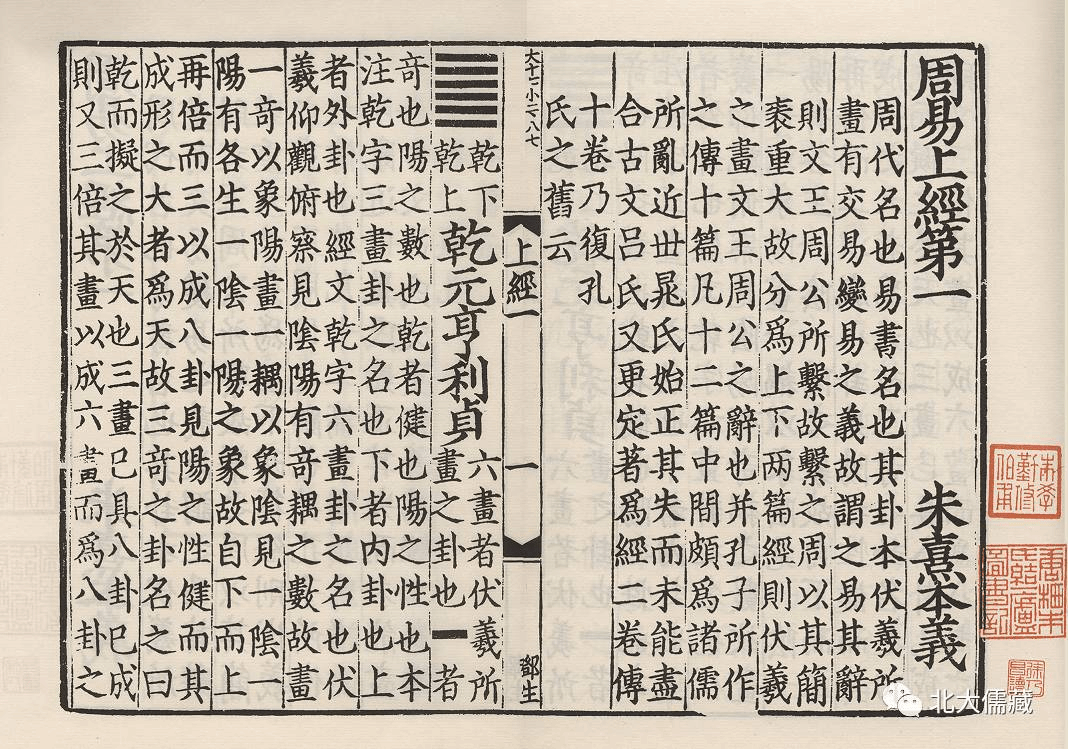 周易上經第一 朱熹本義
周代名也易書名也其卦本伏羲所
畫有交易變易之義故謂之易其辭
則文王周公所繫故繫之周以其簡
袠重大故分爲上下兩篇經則伏羲
之畫文王周公之辭也并孔子所作
之傳十篇凡十二篇中間頗爲諸儒
所亂近丗晁氏始正其失而未能盡
合古文呂氏又更定著爲經二卷傳
十卷乃復孔
氏之舊云
上經一 一 鄒生
䷀ 乾下乾上 乾元亨利貞 六畫者伏羲所畫之卦也一者
奇也陽之數也乾者健也陽之性也本
注乾字三畫卦之名也下者内卦也上
者外卦也經文乾字六畫卦之名也伏
羲仰觀俯察見陰陽有奇耦之數故畫
一奇以象陽畫一耦以象陰見一陰一
陽有各生一陰一陽之象故自下而上
再倍而三以成八卦見陽之性健而其
成形之大者爲天故三奇之卦名之曰
乾而擬之於天也三畫已具八卦已成
則又三倍其畫以成六畫而爲八卦之
北大儒藏